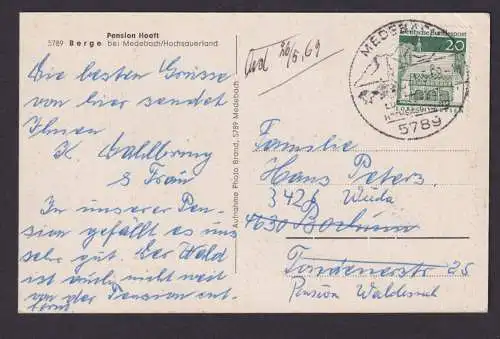 Pension Hooft
5789 Berge bei Medebach/Hochsauerland
Die besten Grüsse
von hier sendet
Ihnen
K. Dahlbring
& Frau
In unserer Pen-
sion gefällt es uns
sehr gut. Der Wald
ist auch nicht weit
von der Pension ent-
fernt.
Aufnahme Photo Brand, 5789 Medebach
26/5.69
Deutsche Bundespost
20
MEDEBACH
5789
Familie
Hans Peters
342
4630 Bochum
25
Pension Waldesruh